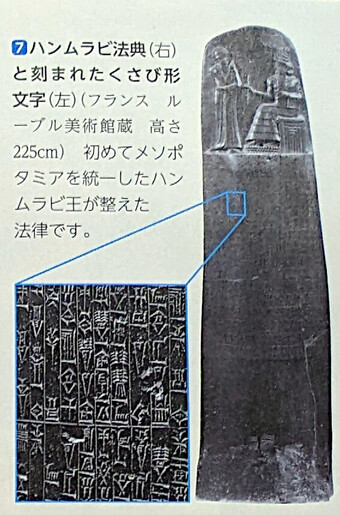 7ハンムラビ法典(右)
と刻まれたくさび形
文字(左)(フランス　ル
ーブル美術館蔵　高さ
225cm)　初めてメソポ
タミアを統一したハン
ムラビ王が整えた
法律です。